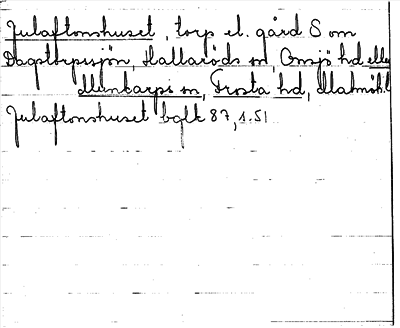 Julaftonshuset, torp el. gård S om
Dagstorpssjön, Hallaröds sn, Onsjö hd eller
Munkarps sn, Frosta hd, Malmöh. l
Julaftonshuset bglk 87, s. 51